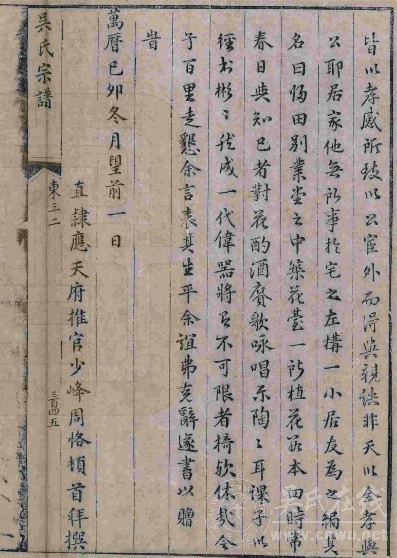 皆以孝感所致以公宦外而得與親訣非天以全孝與
公耶居家他無所事於宅之左構一小居友為之額其
名曰歸田別業堂之中築花臺一所植花數本四時常
春日與知己者對花酌酒賡歌咏唱樂陶〻耳課子以
經書彬〻然成一代偉器將有不可限者猗歟休哉令
子百里走懇余言表其生平余誼弗克辭遂書以贈
旹
萬曆己卯冬月望前一日
直隸應天府推官少峰周恪頓首拜撰
吳氏宗譜
東三二
三百四五
吳氏在線
www.cnwu.net